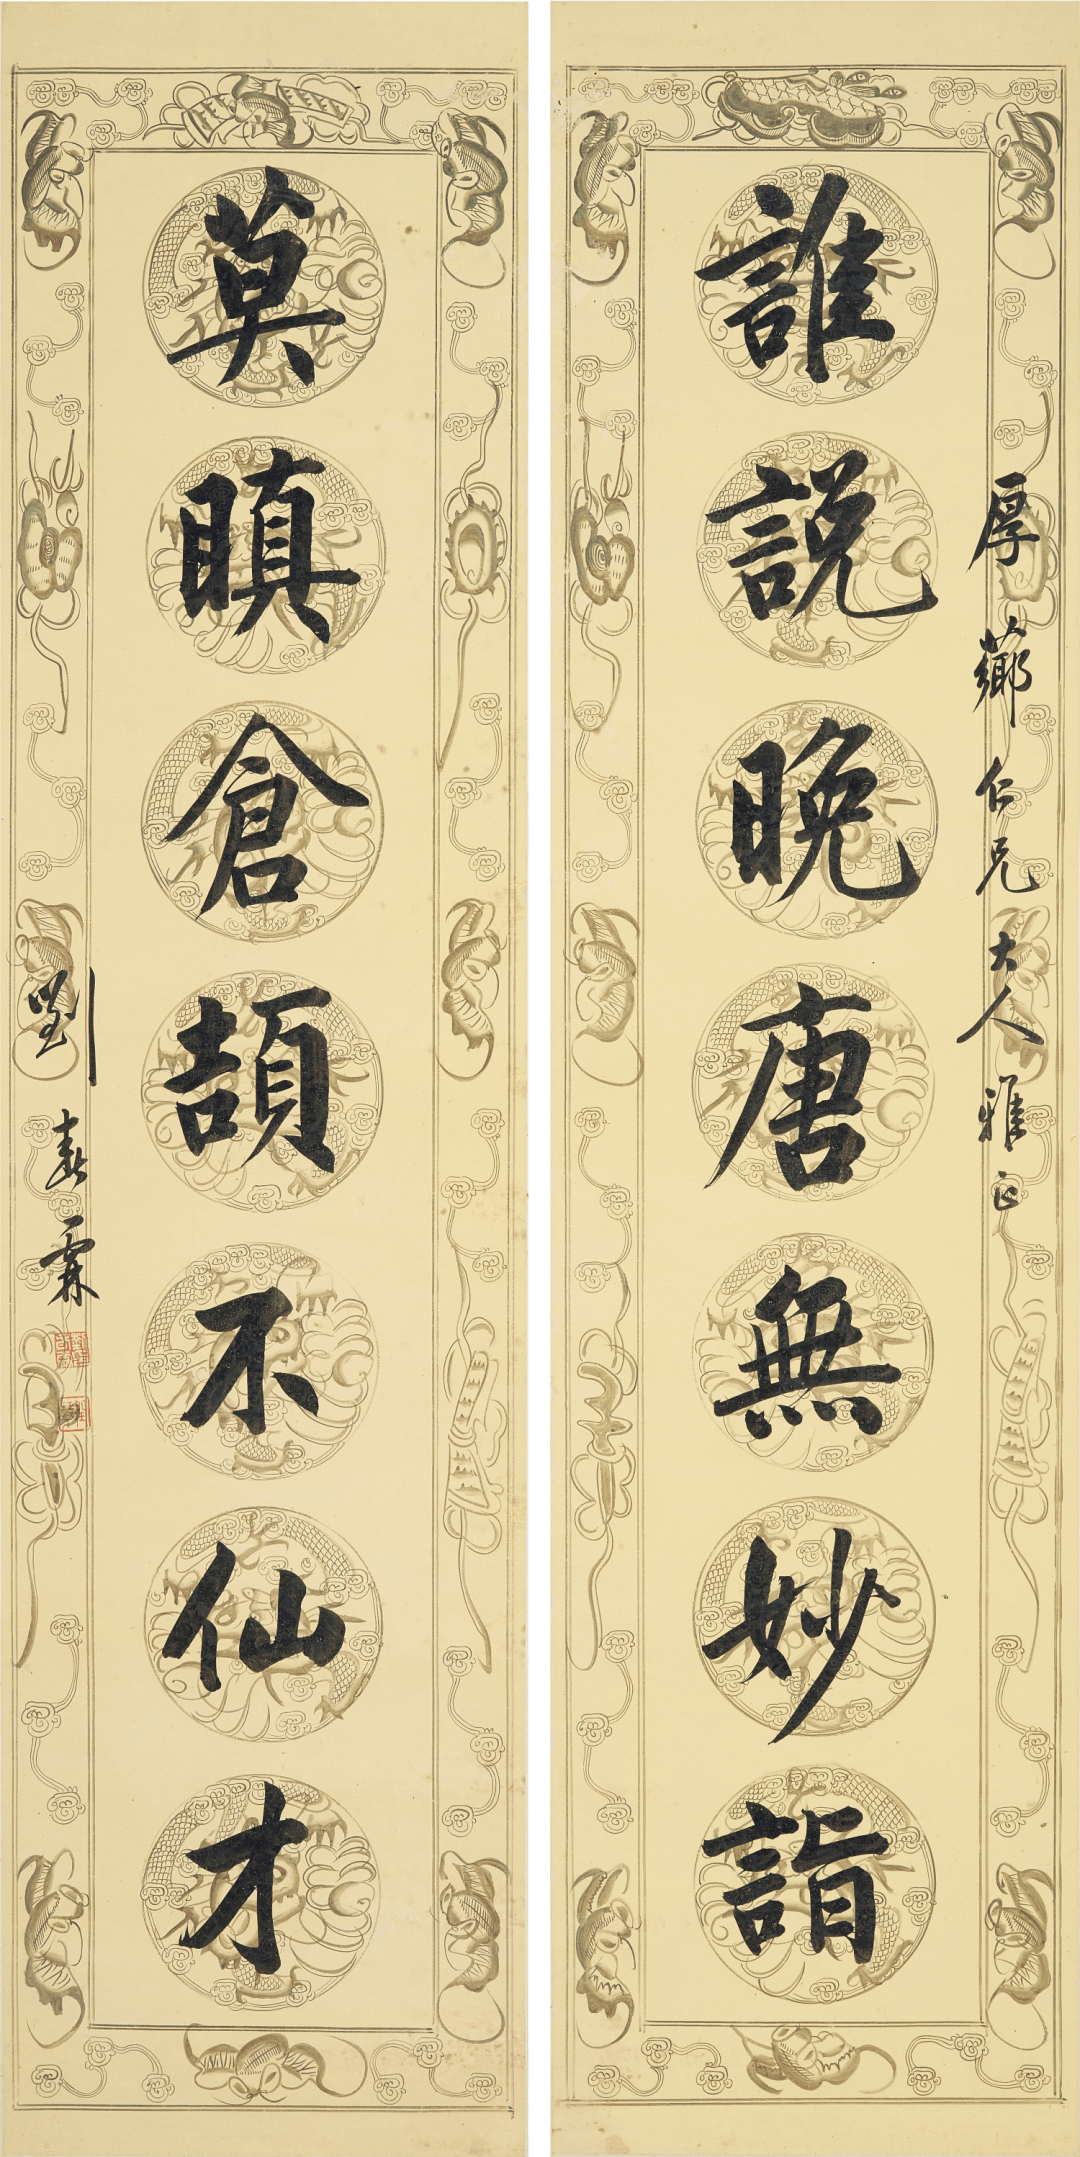 厚薌仁兄大人雅正
誰說晚唐無妙詣
莫瞋倉頡不仙才
劉春霖